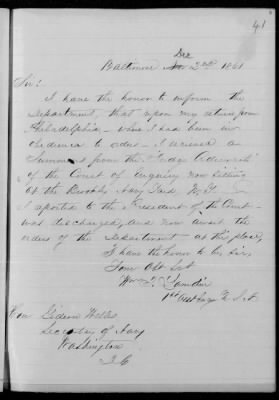 41
Baltimore Dec 2nd 1861
Sir:
I have the honor to inform the
Department, that upon my return from
Philadelphia - where I had been in
obedience to orders - I received a
Summons from the Judge Advocate
of the Court of Enquiry now sitting
at the Brooklyn Navy Yard N.Y.
I reported to the President of the Court -
was discharged, and now await the
orders of the Department at this place,
I have the honor to be, Sir,
Your Obt Svt
1st Asst Engr U.S.N.
Hon Gideon Welles
Secretary of Navy
Washington
D.C.